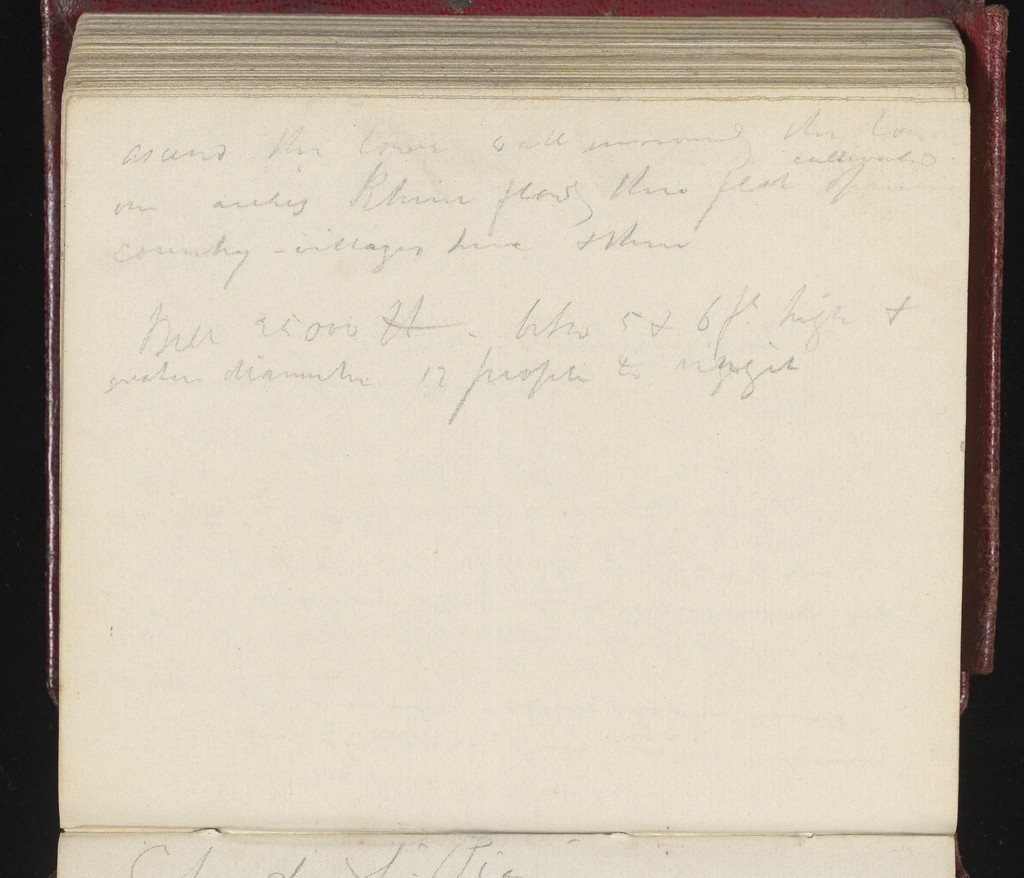 ascend the tower wall surrounding the town
on arches Rhine flowing thro flat open
cultivated
country - villages here & there
Bell 25000 lb - betw 5 & 6 ft high &
greater diameter 12 people to ring it